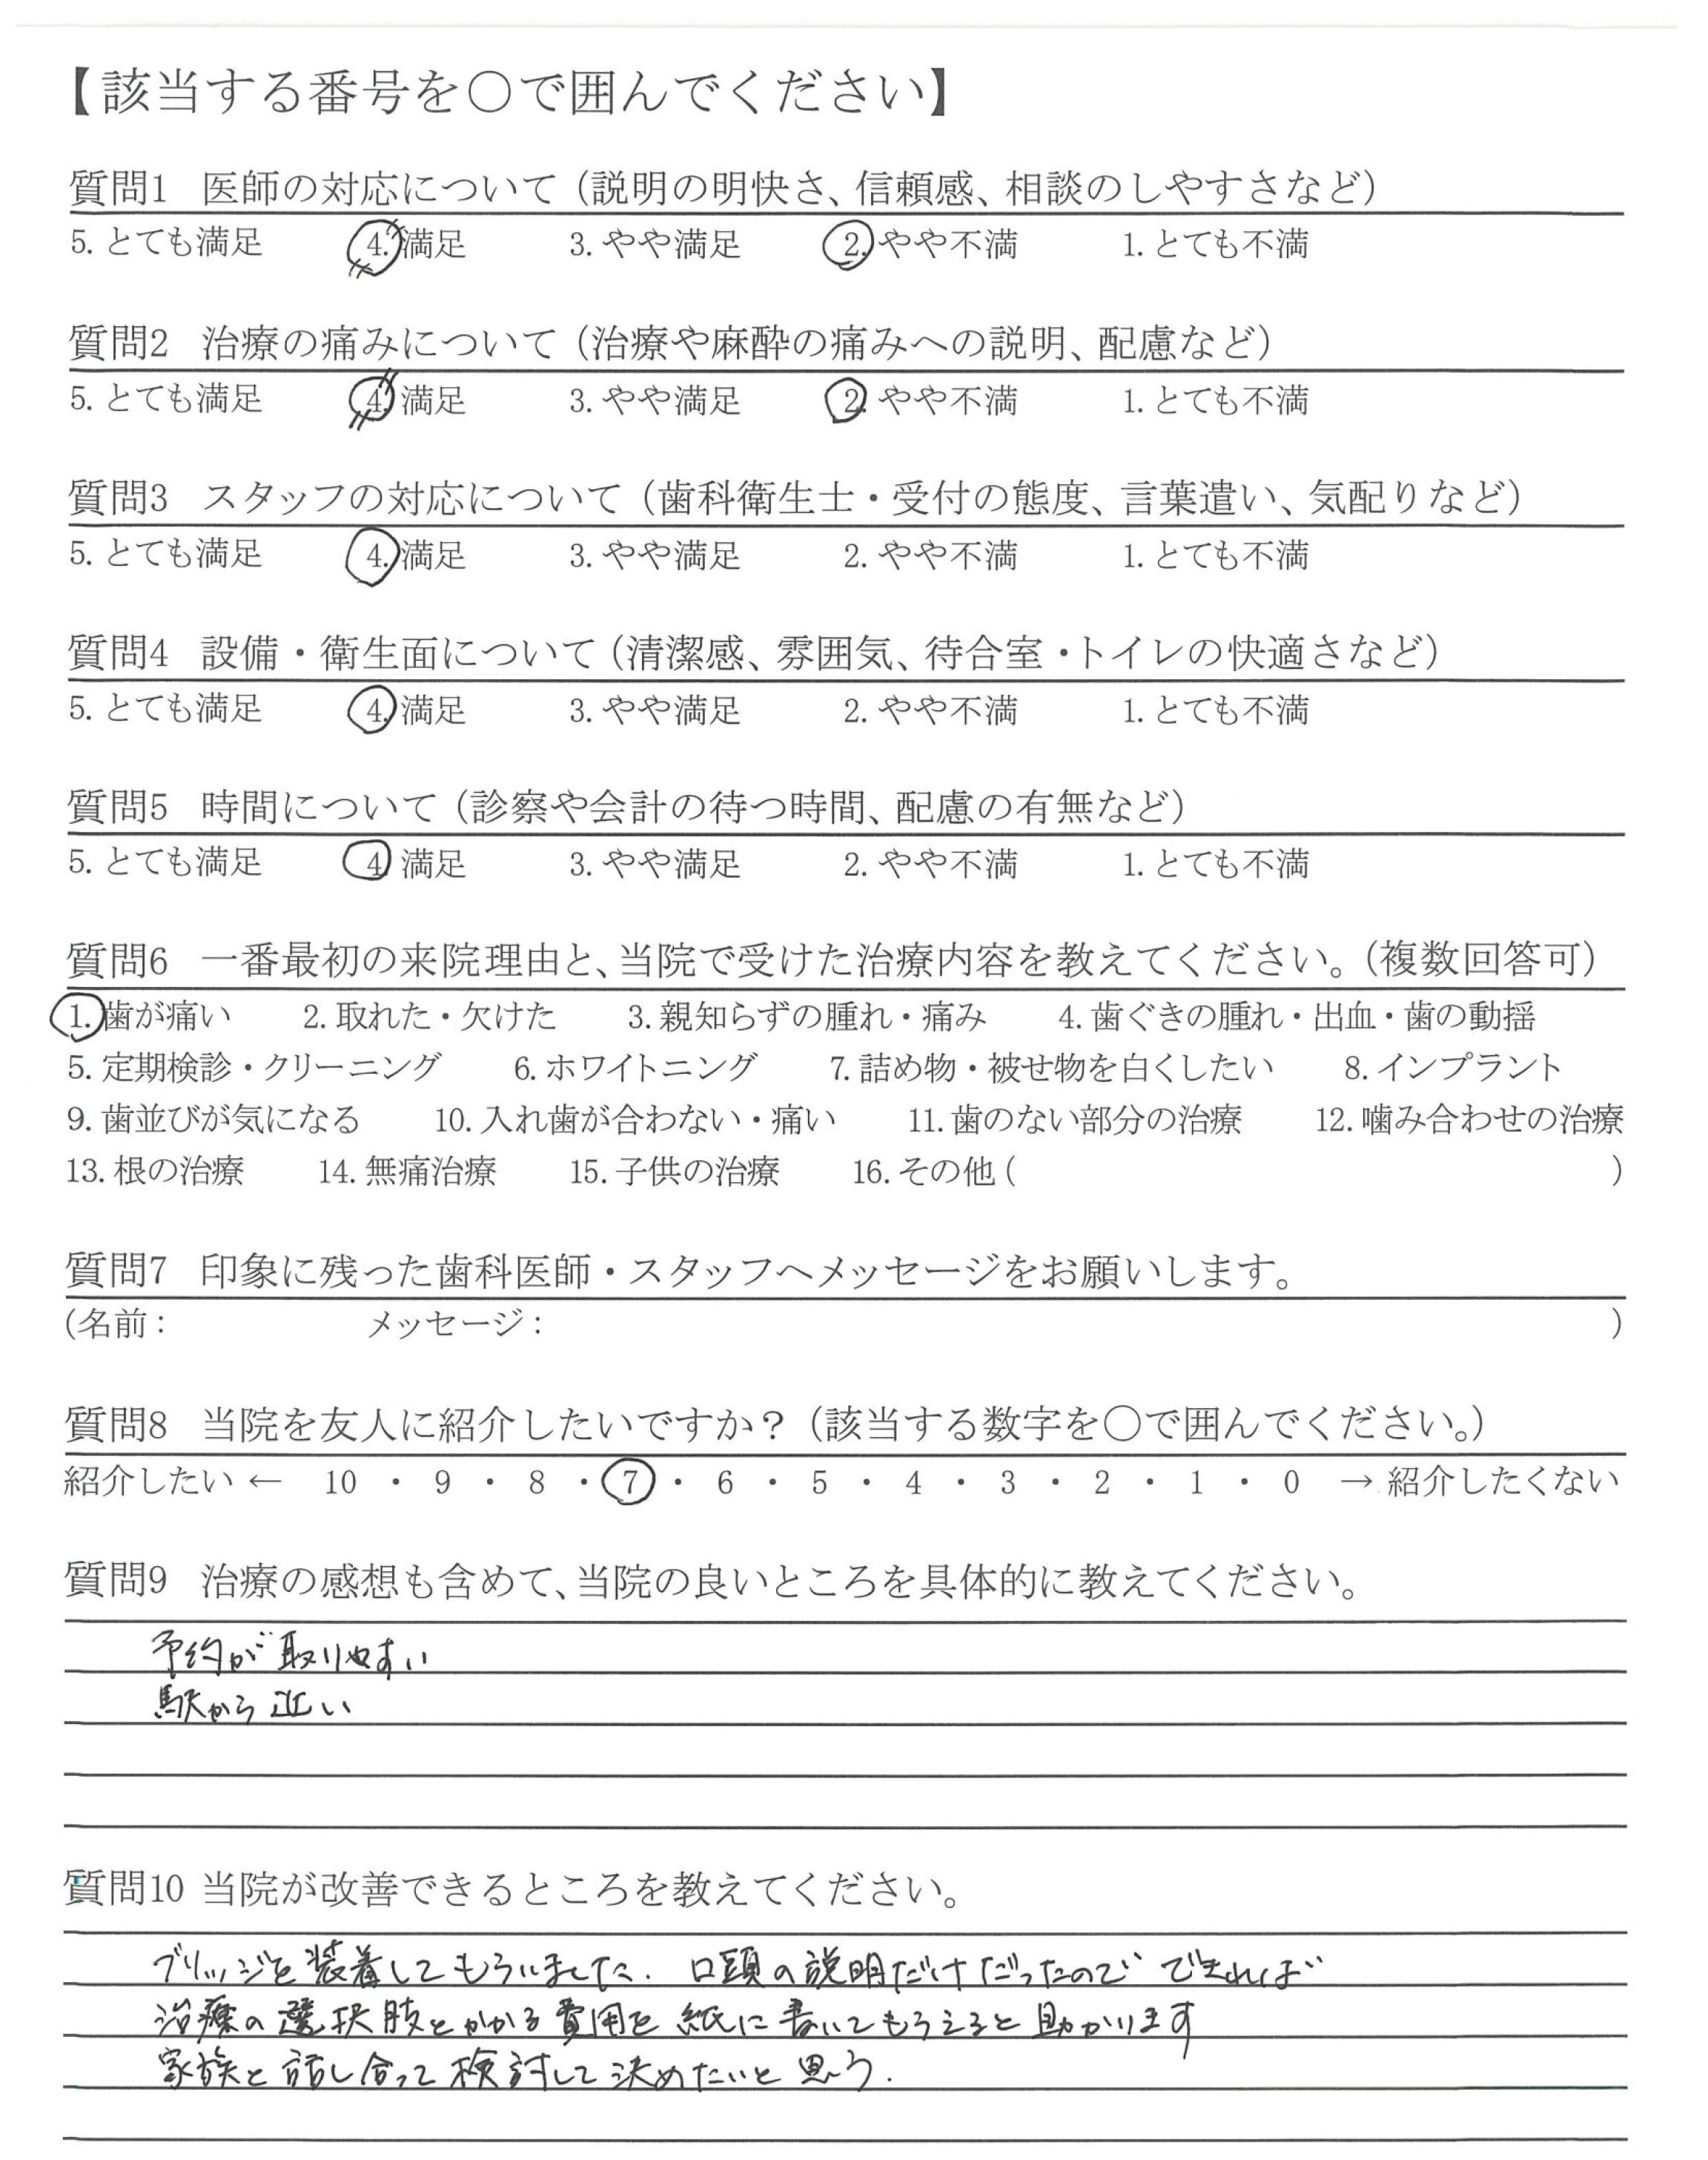 【該当する番号を○で囲んでください】
質問1 医師の対応について（説明の明快さ、信頼感、相談のしやすさなど）
5. とても満足 4. 満足 3. やや満足 2. やや不満 1. とても不満
質問2 治療の痛みについて（治療や麻酔の痛みへの説明、配慮など）
5. とても満足 4. 満足 3. やや満足 2. やや不満 1. とても不満
質問3 スタッフの対応について（歯科衛生士・受付の態度、言葉遣い、気配りなど）
5. とても満足 4. 満足 3. やや満足 2. やや不満 1. とても不満
質問4 設備・衛生面について（清潔感、雰囲気、待合室・トイレの快適さなど）
5. とても満足 4. 満足 3. やや満足 2. やや不満 1. とても不満
質問5 時間について（診察や会計の待つ時間、配慮の有無など）
5. とても満足 4. 満足 3. やや満足 2. やや不満 1. とても不満
質問6 一番最初の来院理由と、当院で受けた治療内容を教えてください。（複数回答可）
1. 歯が痛い 2. 取れた・欠けた 3. 親知らずの腫れ・痛み 4. 歯ぐきの腫れ・出血・歯の動揺
5. 定期検診・クリーニング 6. ホワイトニング 7. 詰め物・被せ物を白くしたい 8. インプラント
9. 歯並びが気になる 10. 入れ歯が合わない・痛い 11. 歯のない部分の治療 12. 噛み合わせの治療
13. 根の治療 14. 無痛治療 15. 子供の治療 16. その他（ ）
質問7 印象に残った歯科医師・スタッフへメッセージをお願いします。
(名前： メッセージ： ）
質問8 当院を友人に紹介したいですか？（該当する数字を○で囲んでください。）
紹介したい ← 10 ・ 9 ・ 8 ・ 7 ・ 6 ・ 5 ・ 4 ・ 3 ・ 2 ・ 1 ・ 0 → 紹介したくない
質問9 治療の感想も含めて、当院の良いところを具体的に教えてください。
予約が取りやすい
駅から近い
質問10 当院が改善できるところを教えてください。
ブリッジを装着してもらいました. 口頭の説明だけだったので できれば
治療の選択肢とかかる費用を 紙に書いてもらえると 助かります
家族と話し合って検討して決めたいと思う.